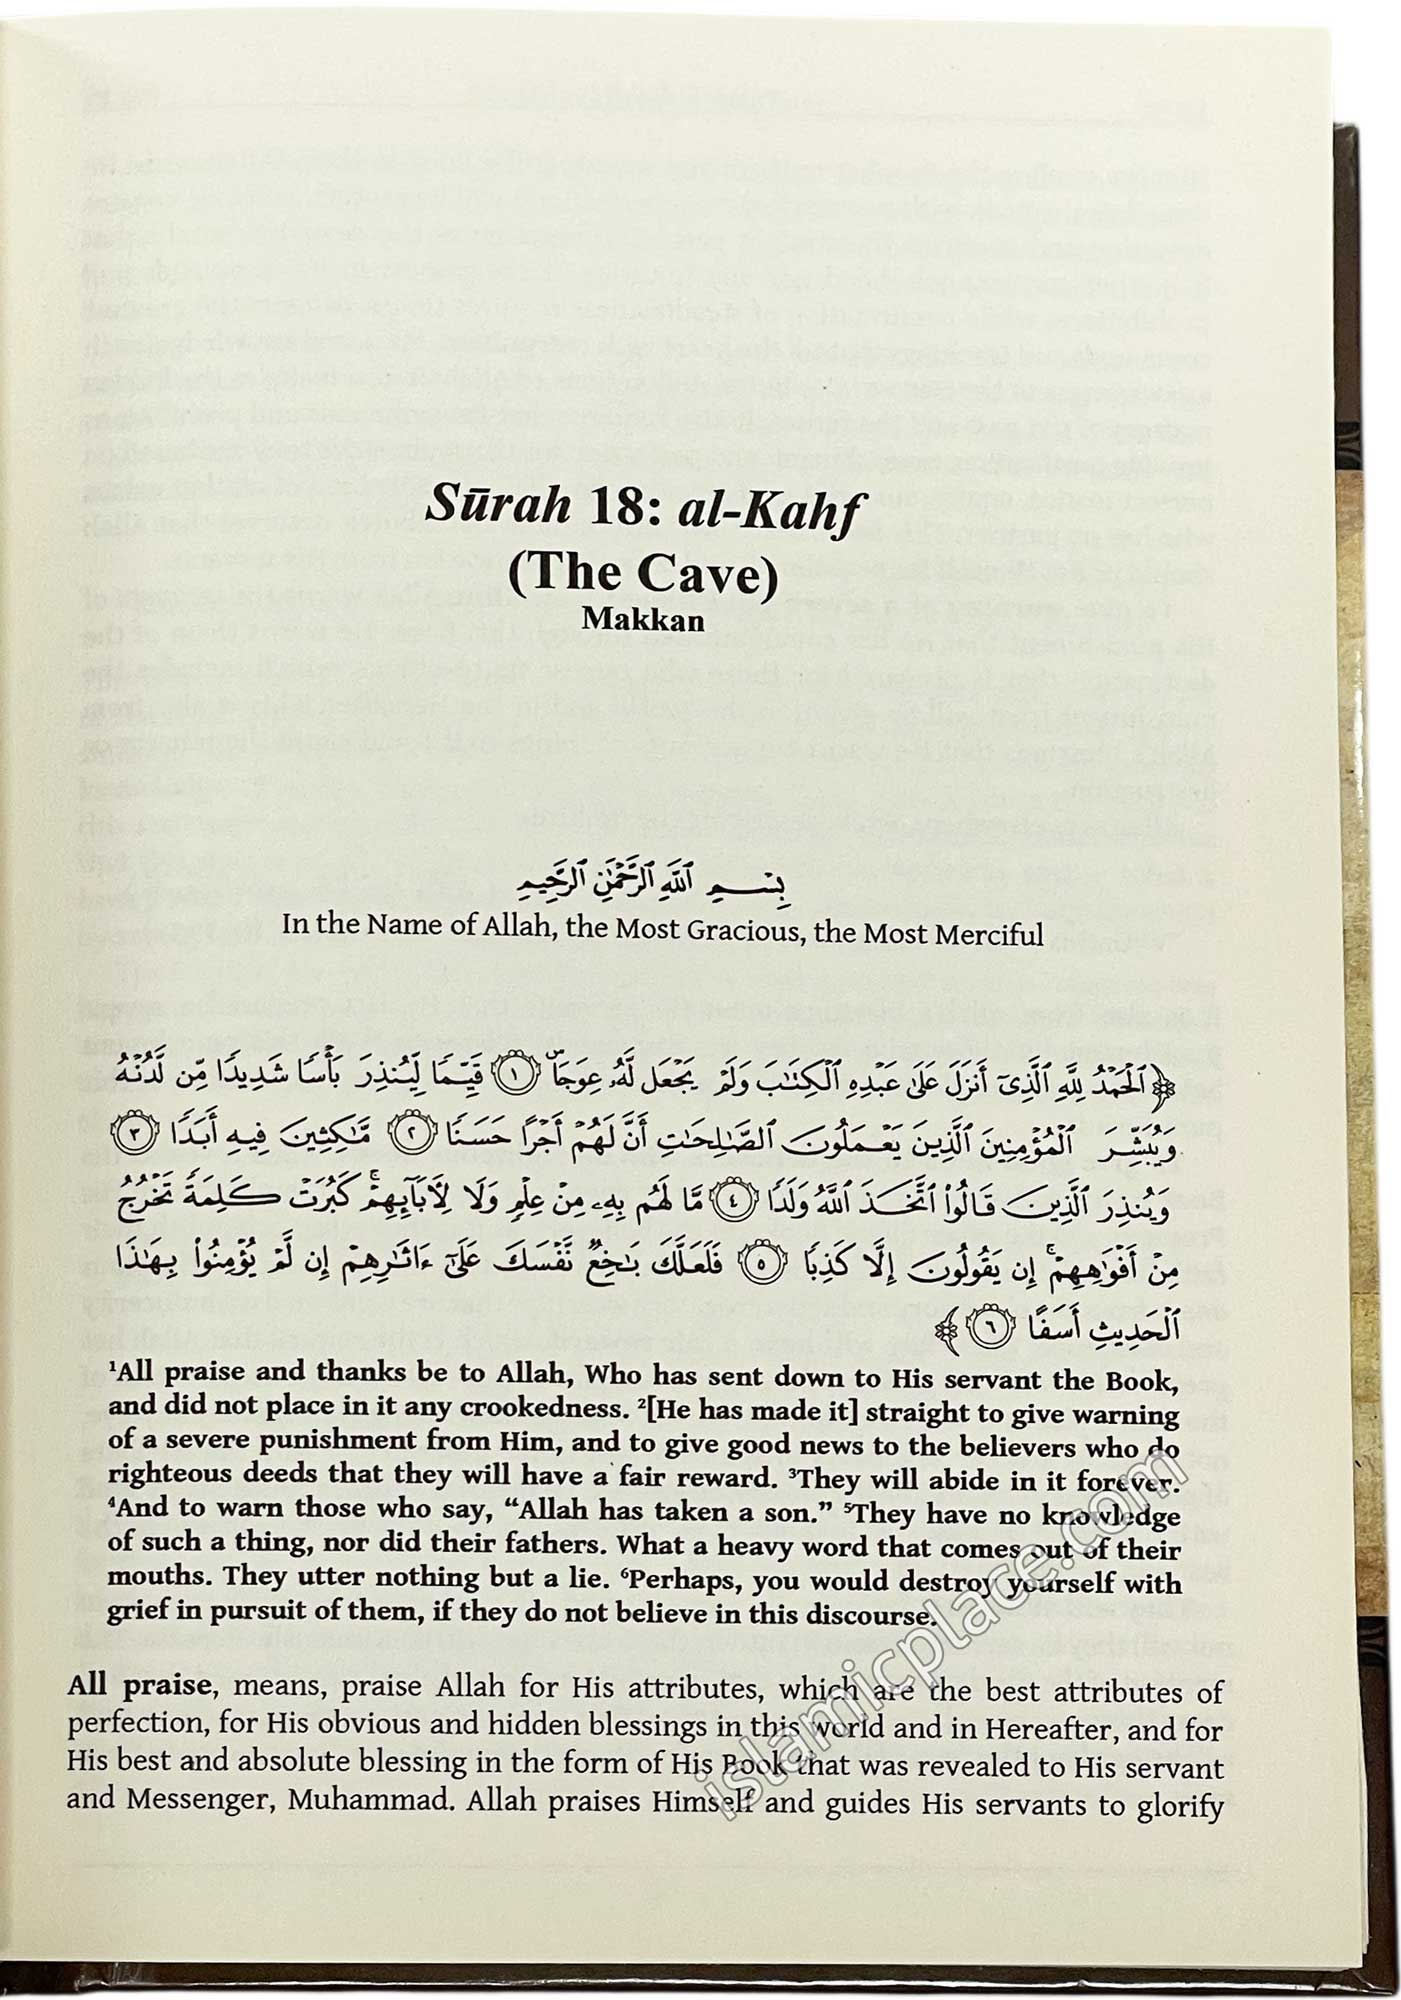 Sūrah 18: al-Kahf
(The Cave)
Makkan
بِسْمِ ٱللَّهِ ٱلرَّحْمَٰنِ ٱلرَّحِيمِ
In the Name of Allah, the Most Gracious, the Most Merciful
﴿ٱلْحَمْدُ لِلَّهِ ٱلَّذِىٓ أَنزَلَ عَلَىٰ عَبْدِهِ ٱلْكِتَٰبَ وَلَمْ يَجْعَل لَّهُۥ عِوَجَاۜ ١ قَيِّمًا لِّيُنذِرَ بَأْسًا شَدِيدًا مِّن لَّدُنْهُ
وَيُبَشِّرَ ٱلْمُؤْمِنِينَ ٱلَّذِينَ يَعْمَلُونَ ٱلصَّٰلِحَٰتِ أَنَّ لَهُمْ أَجْرًا حَسَنًا ٢ مَّٰكِثِينَ فِيهِ أَبَدًا ٣
وَيُنذِرَ ٱلَّذِينَ قَالُوا۟ ٱتَّخَذَ ٱللَّهُ وَلَدًا ٤ مَّا لَهُم بِهِۦ مِنْ عِلْمٍ وَلَا لِءَابَآئِهِمْ ۚ كَبُرَتْ كَلِمَةً تَخْرُجُ
مِنْ أَفْوَٰهِهِمْ ۚ إِن يَقُولُونَ إِلَّا كَذِبًا ٥ فَلَعَلَّكَ بَٰخِعٌ نَّفْسَكَ عَلَىٰٓ ءَاثَٰرِهِمْ إِن لَّمْ يُؤْمِنُوا۟ بِهَٰذَا
ٱلْحَدِيثِ أَسَفًا ٦﴾
¹All praise and thanks be to Allah, Who has sent down to His servant the Book,
and did not place in it any crookedness. ²[He has made it] straight to give warning
of a severe punishment from Him, and to give good news to the believers who do
righteous deeds that they will have a fair reward. ³They will abide in it forever.
⁴And to warn those who say, “Allah has taken a son.” ⁵They have no knowledge
of such a thing, nor did their fathers. What a heavy word that comes out of their
mouths. They utter nothing but a lie. ⁶Perhaps, you would destroy yourself with
grief in pursuit of them, if they do not believe in this discourse.
All praise, means, praise Allah for His attributes, which are the best attributes of
perfection, for His obvious and hidden blessings in this world and in Hereafter, and for
His best and absolute blessing in the form of His Book that was revealed to His servant
and Messenger, Muhammad. Allah praises Himself and guides His servants to glorify
islamicplace.com